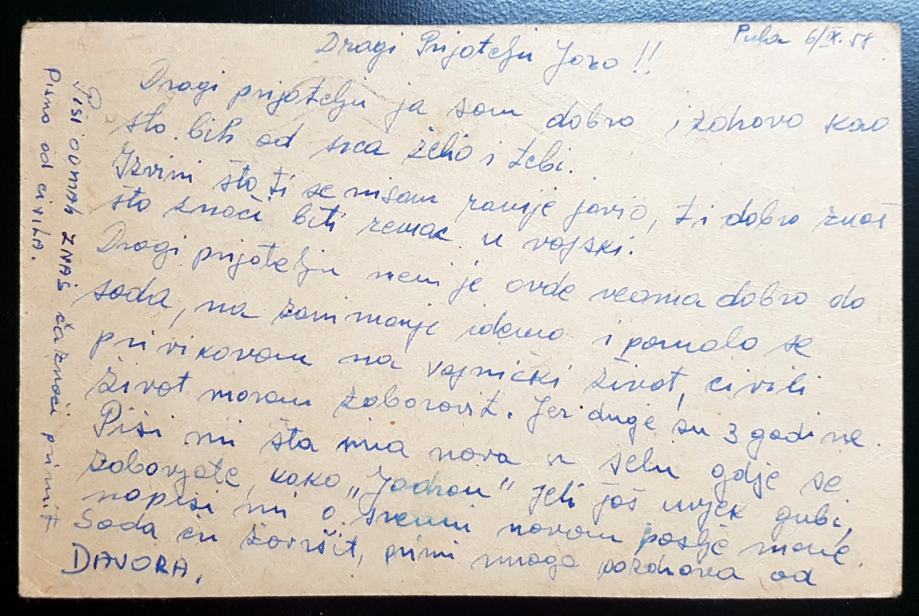 Pula 6/IX. 58
Dragi Prijatelju Jozo !!
Dragi prijatelju ja sam dobro i zdravo kao
što bih od srca želio i tebi.
Izvini što ti se nisam ranije javio, ti dobro znaš
što znači biti remac u vojski.
Dragi prijatelju meni je ovde veoma dobro do
sada, na zanimanje idemo i pomalo se
privikovam na vojnički život, civili
život moram zaboravit. Jer duge su 3 godine.
Piši mi šta ima nova u selu gdje se
zabavjate, kako „Jadran" jeli još uvjek gubi,
napiši mi o svemu novom poslje mene.
Sada ću završit, primi mnogo pozdrava od
DAVORA.
Piši odmah ZNAŠ ča znači primit
Pismo od civila.